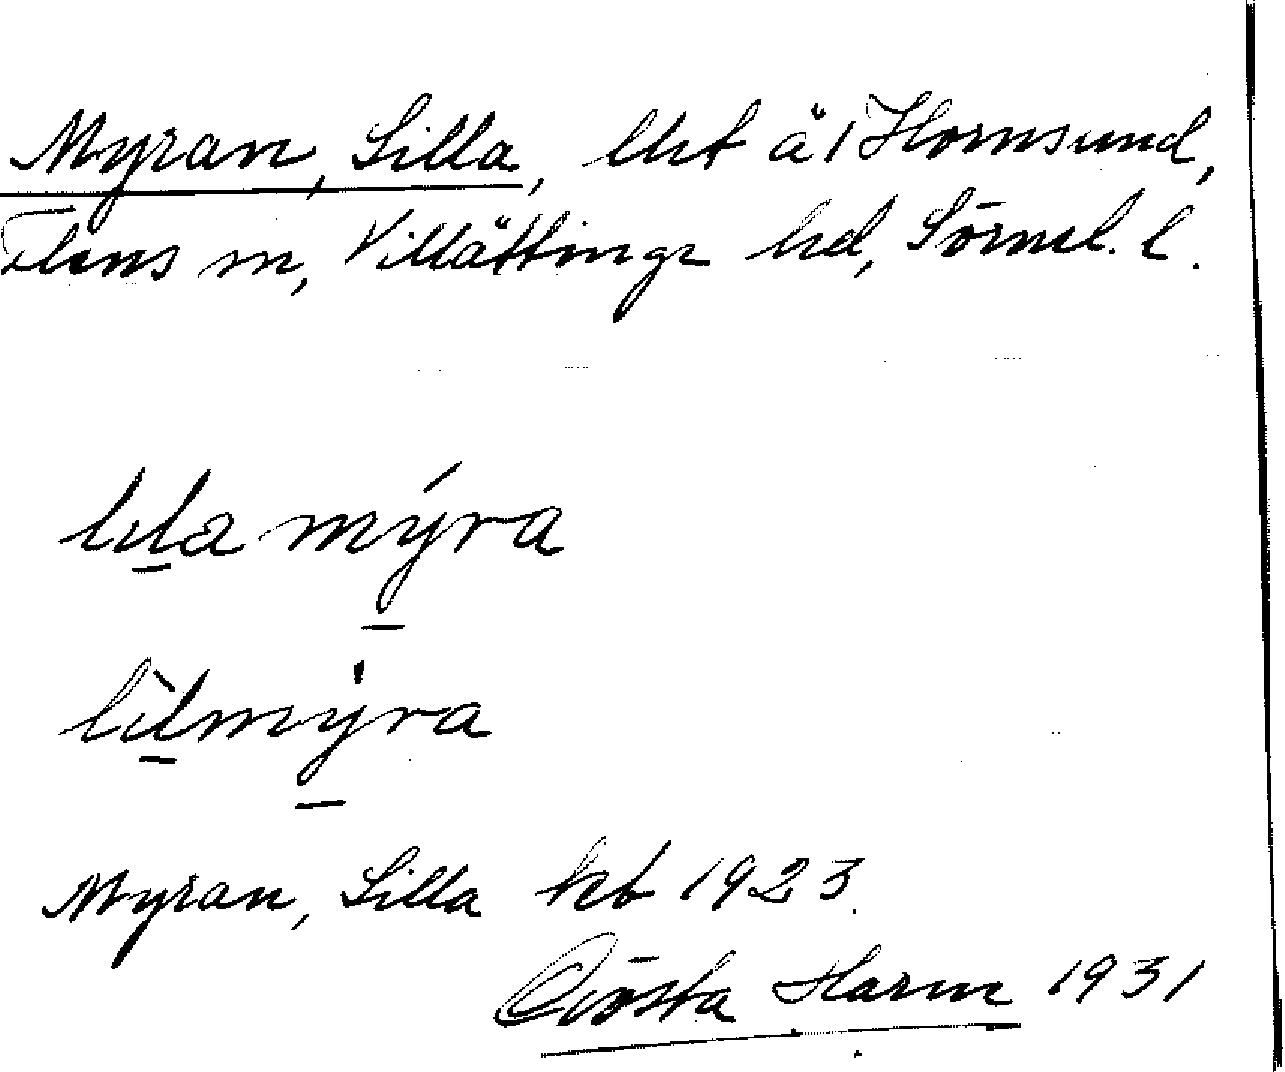 Myran, Lilla, lht å 1 Hornsund,
Flens sn, Villåttinge hd, Sörml. l.
lila mýra
lìlmyra
Myran, Lilla kb 1923.
Gösta Harm 1931